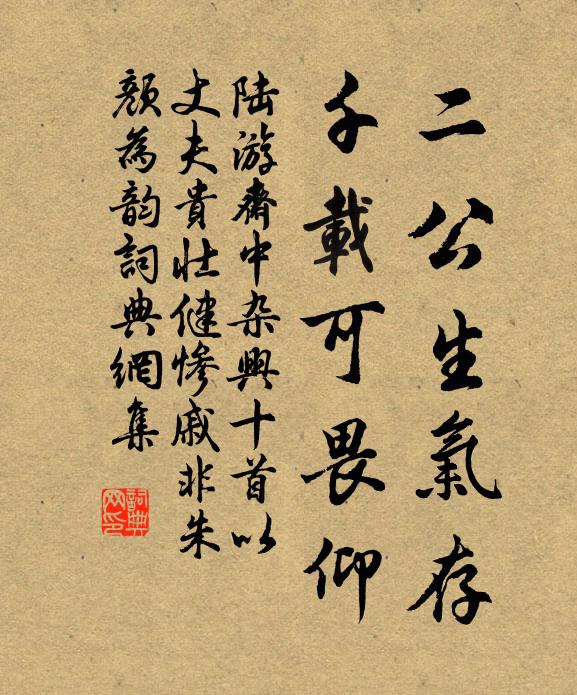 二公生氣存
千載可畏仰
陆游齋中杂興十首以
丈夫貴壯健惨戚非朱
顔為韵詞典網集
詞典
网印